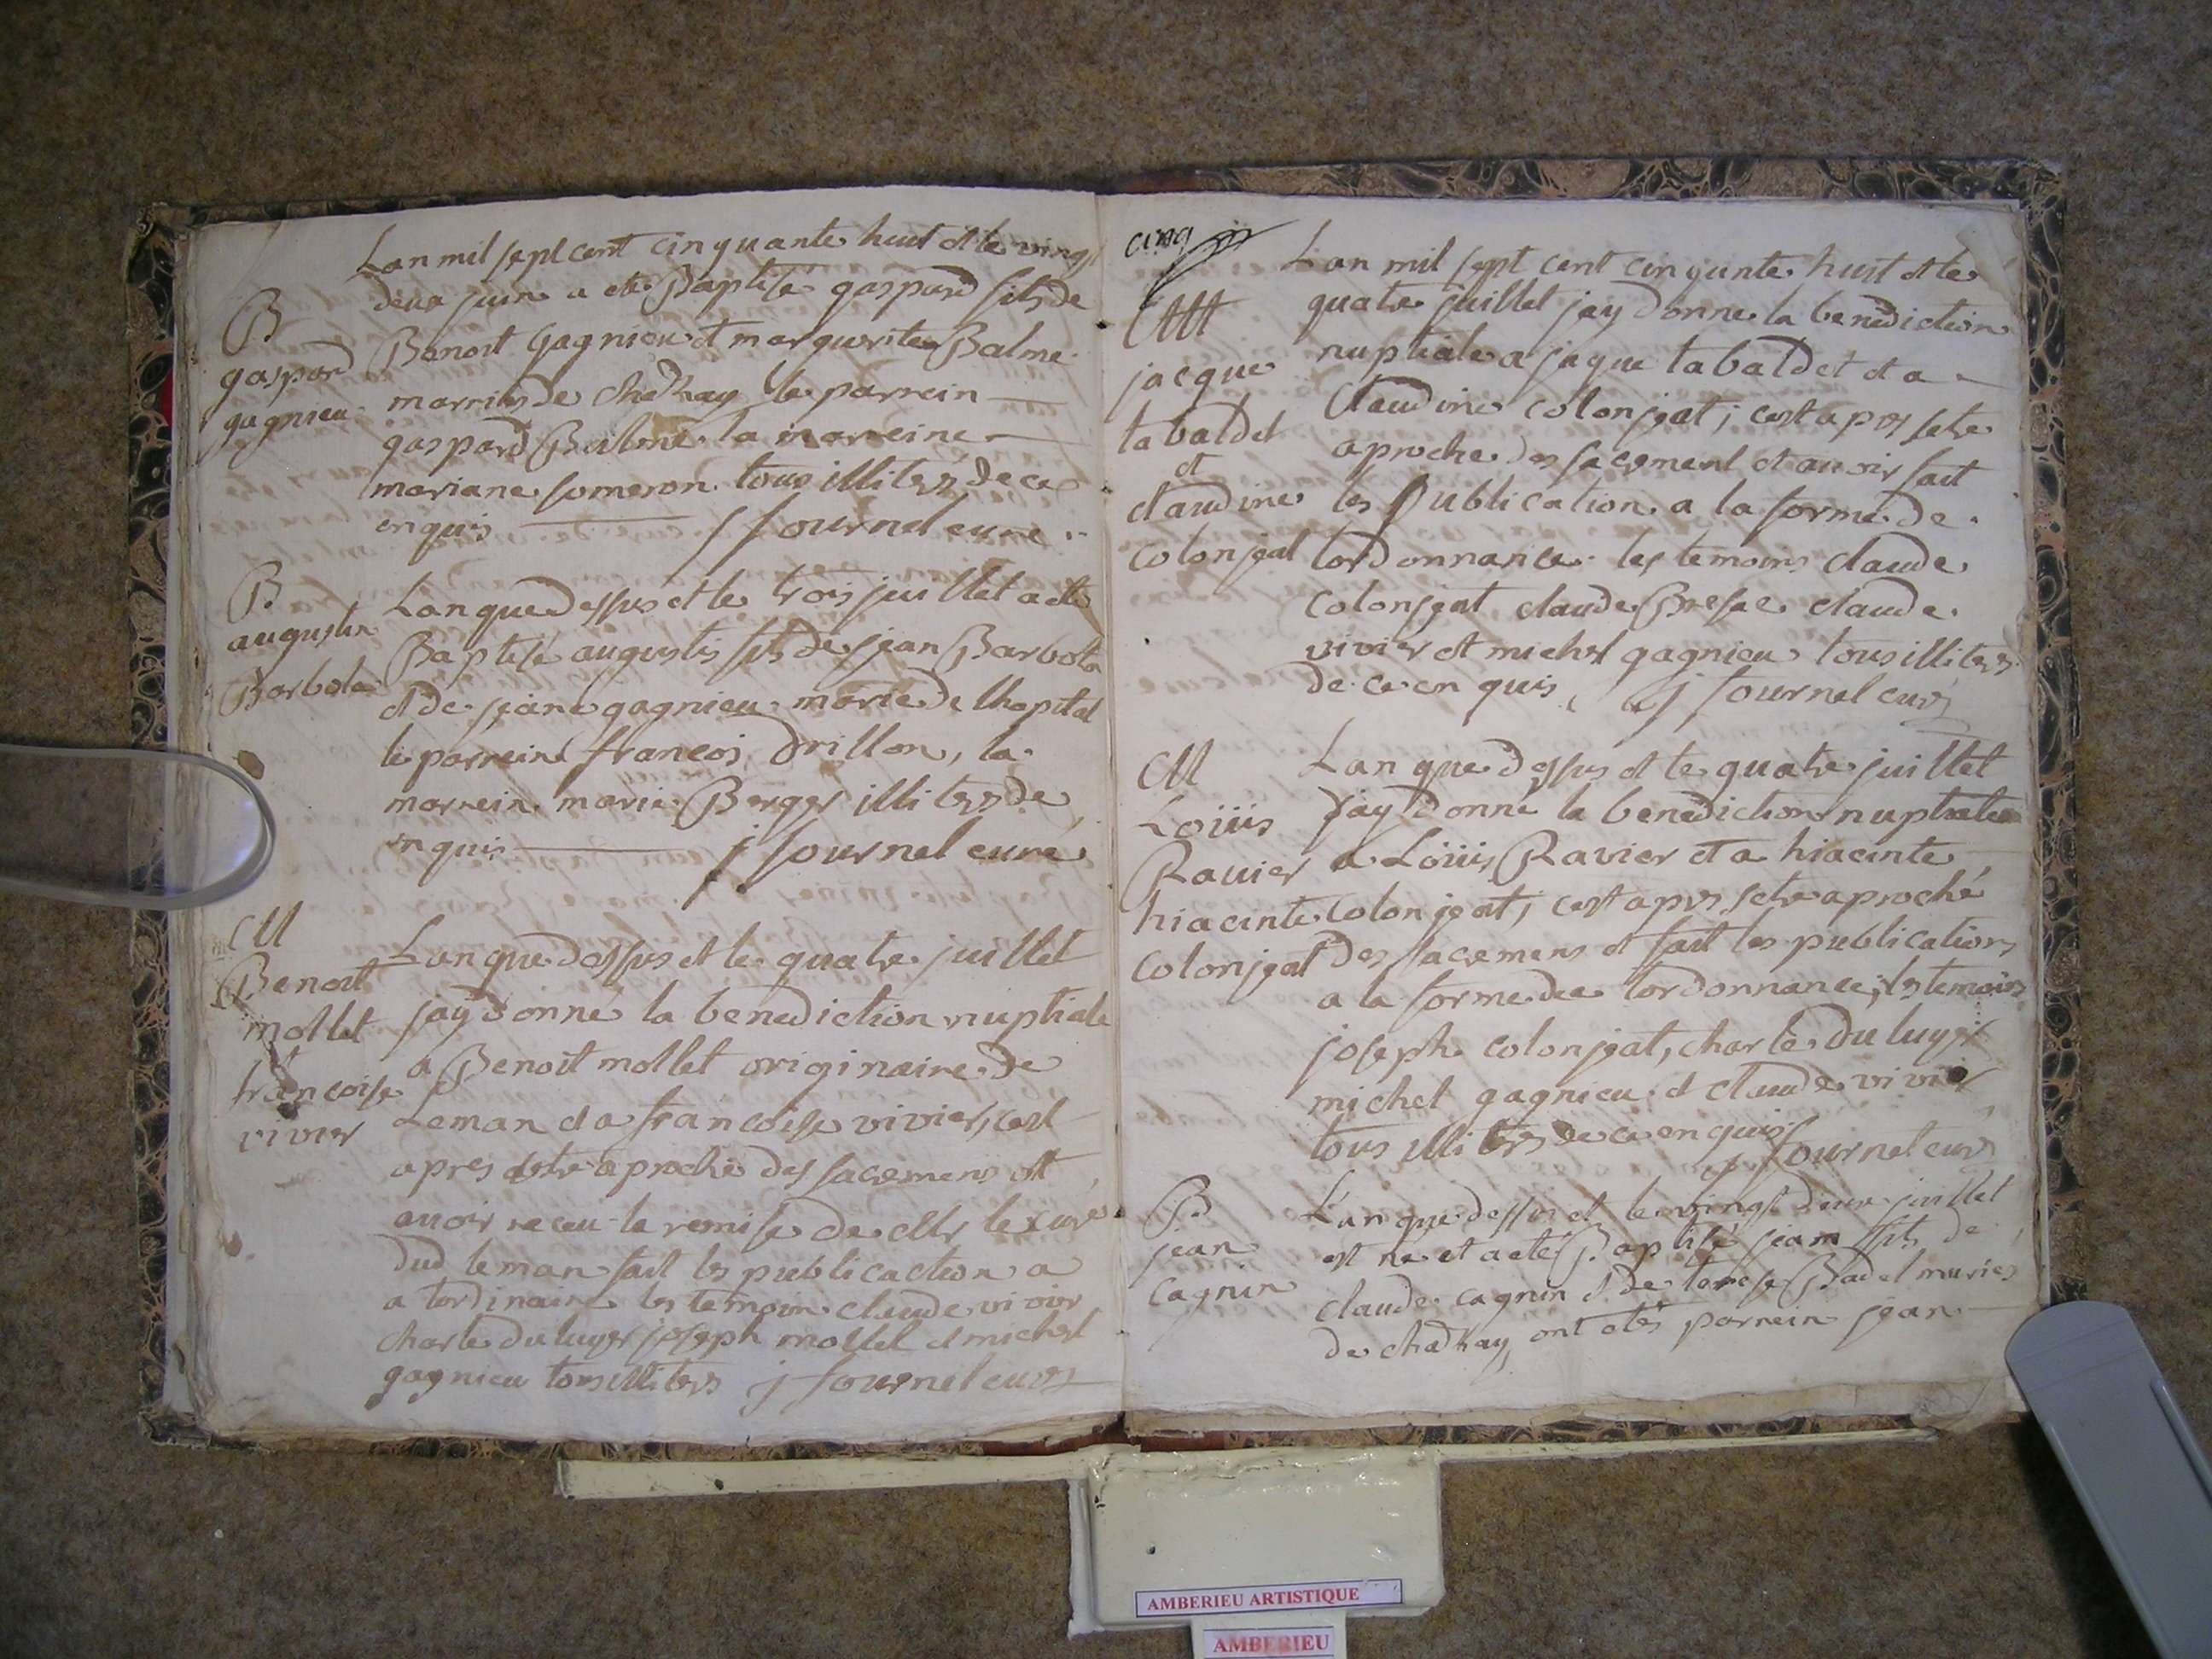 Lan mil sept cent cinquante huit et le vingt
deux juin a ete Baptisé gaspard fils de
B
gaspard
gagnieu
Benoit gagnieu et marguerite Balme
marries de le parrein
gaspard Balme la marreine
mariane someron tous illiterés de ce
enquis j fournel curé
B
augustin
Barbola
Lan que dessus et le trois juillet a ete
Baptisé augustin fils de jean Barbola
et de jeane gagnieu mariè de lhopital
le parrein francois Drillon, la
marrein marie Berger illiterés de
enquis j fournel curé
M
Benoit
mollet
&
francoise
vivier
Lan que dessus et le quatre juillet
jay donné la benediction nuptiale
a Benoit mollet originaire de
Leman et a francoise vivier, cest
apres aproché des sacremens et
avoir receu la remise de Mr le curé
dud leman fait les publicaction a
a lordinaire les temoin claude vivier
charle du luyer joseph mollet et michel
gagnieu tous illiterés j fournel curé
cinq
M
jacque
tabaldet
et
claudine
colonjeat
Lan mil sept cent cinquante huit et le
quatre juillet jay donné la benediction
nuptiale a jaque tabaldet et a
Claudine colonjeat; cest apres setre
aproche des sacrement et avoir fait
les Publication a la forme de
lordonnance les temoins claude
colonjeat claude claude
vivier et michel gagnieu tous illiterés
de ce en quis j fournel curé
M
Loüis
Ravier
hiacinte
colonjeat
Lan que dessus et le quatre juillet
jay donné la benediction nuptiale
a Loüis Ravier et a hiacinte
colonjeat, cest apres setre aproché
des sacremens et fait les publication
a la forme de lordonnance; les temoins
joseph colonjeat, charle du luyer
michel gagnieu et claude vivier
tous illiterés de ce enquis j fournel curé
B
jean
cagnin
Lan que dessus et le vingt deux juillet
est né et a eté Baptisé jean fils de
claude cagnin et de Badel mariés
de ont etés parrein jean
AMBERIEU ARTISTIQUE
AMBERIEU